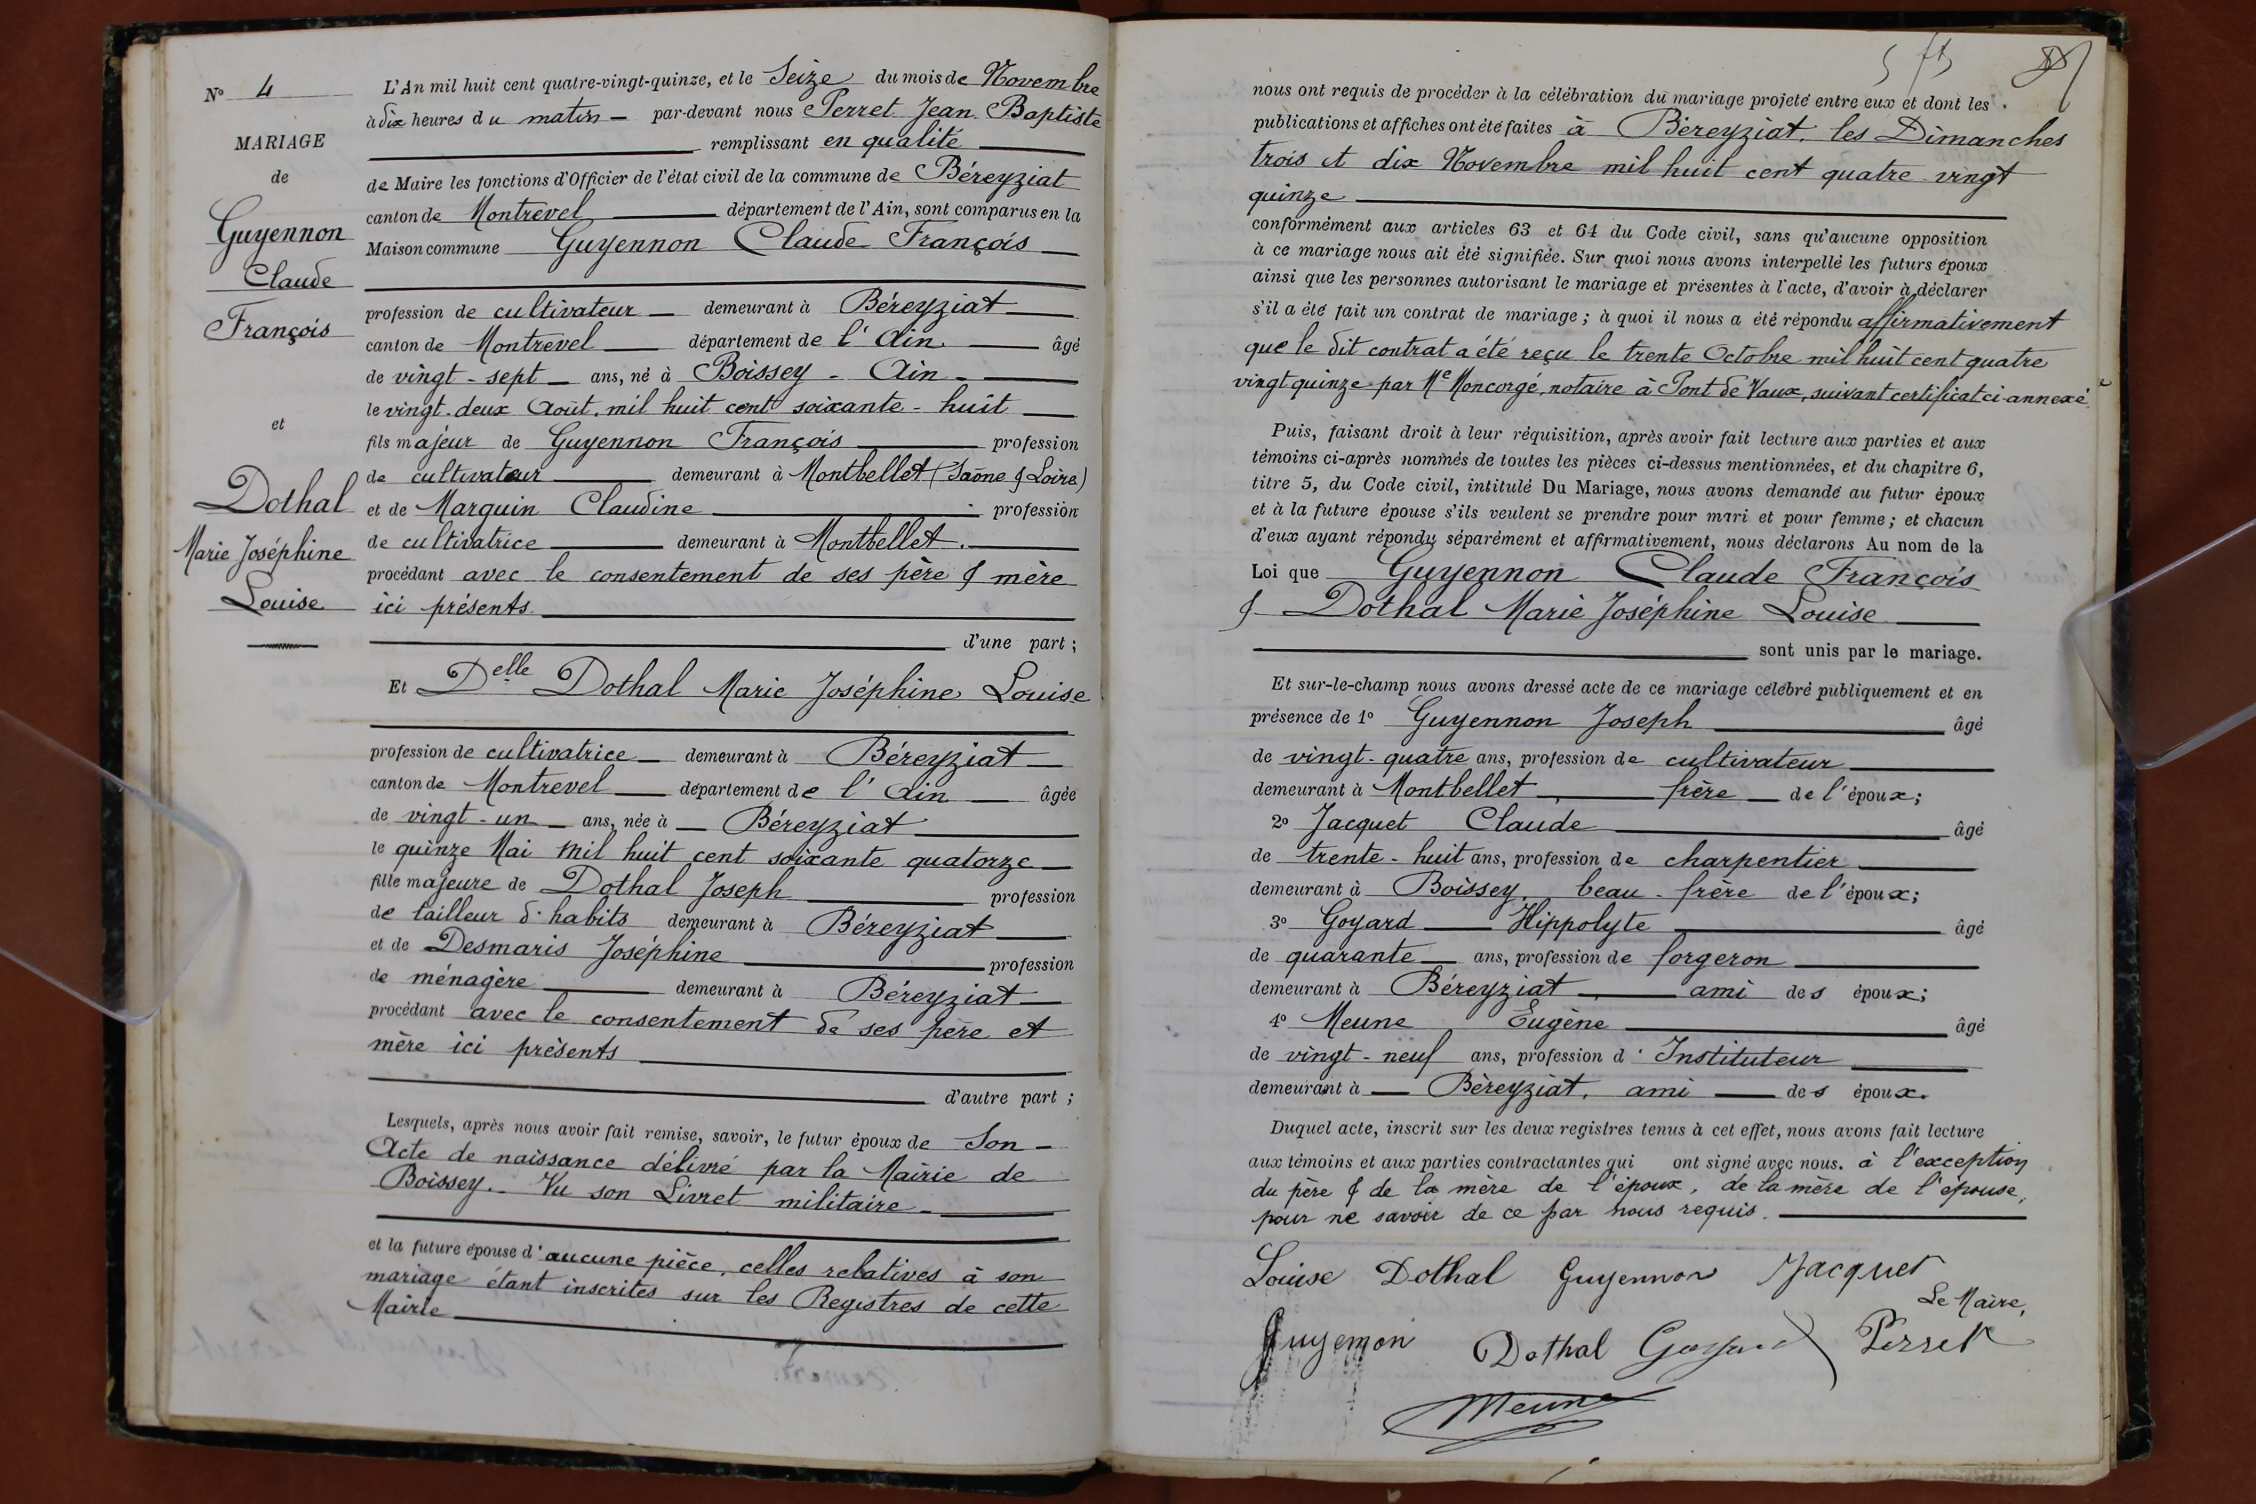 N° 4
MARIAGE
de
Guyennon
Claude
François
et
Dothal
Marie Joséphine
Louise
L'An mil huit cent quatre-vingt-quinze, et le Seize du mois de Novembre
à dix heures du matin — par-devant nous Perret Jean Baptiste
remplissant en qualité
de Maire les fonctions d'Officier de l'état civil de la commune de Béreyziat
canton de Montrevel département de l'Ain, sont comparus en la
Maison commune Guyennon Claude François
profession de cultivateur — demeurant à Béreyziat
canton de Montrevel département de l'Ain. âgé
de vingt-sept — ans, né à Boissey - Ain -
le vingt-deux Août mil huit cent soixante-huit
fils majeur de Guyennon François profession
de cultivateur demeurant à Montbellet (Saône & Loire)
et de Marguin Claudine profession
de cultivatrice demeurant à Montbellet.
procédant avec le consentement de ses père & mère
ici présents
d'une part ;
Et Delle Dothal Marie Joséphine Louise
profession de cultivatrice — demeurant à Béreyziat
canton de Montrevel département de l'Ain âgée
de vingt-un — ans, née à — Béreyziat
le quinze Mai mil huit cent soixante quatorze
fille majeure de Dothal Joseph profession
de tailleur d'habits demeurant à Béreyziat
et de Desmaris Joséphine profession
de ménagère demeurant à Béreyziat
procédant avec le consentement de ses père et
mère ici présents
d'autre part ;
Lesquels, après nous avoir fait remise, savoir, le futur époux de Son
Acte de naissance délivré par la Mairie de
Boissey. - Vu son Livret militaire -
et la future épouse d'aucune pièce, celles relatives à son
mariage étant inscrites sur les Registres de cette
Mairie
nous ont requis de procéder à la célébration du mariage projeté entre eux et dont les
publications et affiches ont été faites à Béreyziat, les Dimanches
trois et dix Novembre mil huit cent quatre vingt
quinze
conformément aux articles 63 et 64 du Code civil, sans qu'aucune opposition
à ce mariage nous ait été signifiée. Sur quoi nous avons interpellé les futurs époux
ainsi que les personnes autorisant le mariage et présentes à l'acte, d'avoir à déclarer
s'il a été fait un contrat de mariage ; à quoi il nous a été répondu affirmativement
que le dit contrat a été reçu le trente Octobre mil huit cent quatre
vingt quinze par Me Moncorgé, notaire à Pont de Vaux, suivant certificat ci-annexé
Puis, faisant droit à leur réquisition, après avoir fait lecture aux parties et aux
témoins ci-après nommés de toutes les pièces ci-dessus mentionnées, et du chapitre 6,
titre 5, du Code civil, intitulé Du Mariage, nous avons demandé au futur époux
et à la future épouse s'ils veulent se prendre pour mari et pour femme ; et chacun
d'eux ayant répondu séparément et affirmativement, nous déclarons Au nom de la
Loi que Guyennon Claude François
& Dothal Marie Joséphine Louise
sont unis par le mariage.
Et sur-le-champ nous avons dressé acte de ce mariage célébré publiquement et en
présence de 1° Guyennon Joseph âgé
de vingt-quatre ans, profession de cultivateur
demeurant à Montbellet, frère — de l'époux ;
2° Jacquet Claude âgé
de trente-huit ans, profession de charpentier
demeurant à Boissey, beau-frère de l'époux ;
3° Goyard — Hippolyte âgé
de quarante — ans, profession de forgeron
demeurant à Béreyziat — ami des époux ;
4° Meune Eugène âgé
de vingt-neuf ans, profession d'Instituteur
demeurant à — Béreyziat, ami — des époux.
Duquel acte, inscrit sur les deux registres tenus à cet effet, nous avons fait lecture
aux témoins et aux parties contractantes qui ont signé avec nous. à l'exception
du père & de la mère de l'époux, de la mère de l'épouse,
pour ne savoir de ce par nous requis.
Louise Dothal Guyennon Jacquet
Le Maire,
Guyennon Dothal Goyard Perret
Meune